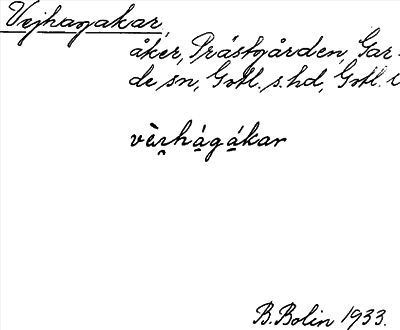 Vejhagakar,
åker, Prästgården, Gar-
de sn, Gotl. s. hd, Gotl. l
vèrhágákar
B. Bolin 1933.